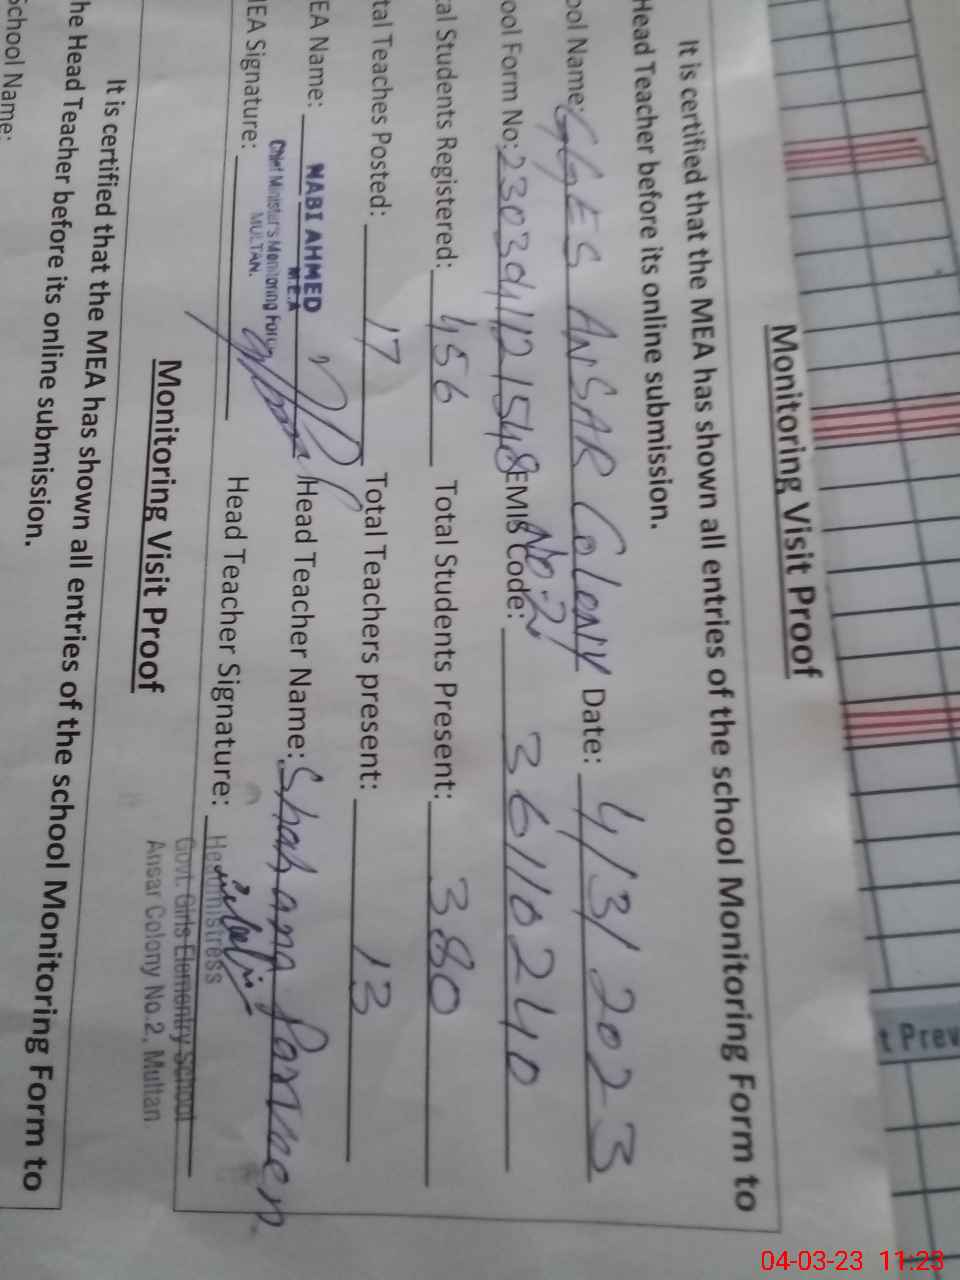 Monitoring Visit Proof
It is certified that the MEA has shown all entries of the school Monitoring Form to
Head Teacher before its online submission.
ool Name: GGES ANSAR Colony Date: 4/3/2023
No.2
ool Form No: 2303041121548 EMIS Code: 36110240
al Students Registered: 456 Total Students Present: 380
tal Teaches Posted: 17 Total Teachers present: 13
EA Name: NABI AHMED Head Teacher Name: Shahana Parveen
M.E.A
Chief Minister's Monitoring Force
MULTAN.
IEA Signature: Head Teacher Signature:
Headmistress
Govt. Girls Elementry School
Ansar Colony No.2, Multan
Monitoring Visit Proof
It is certified that the MEA has shown all entries of the school Monitoring Form to
he Head Teacher before its online submission.
School Name:
t Prev
04-03-23 11:23